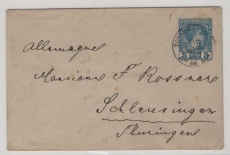 Allemagne
Monsieur F. Rossner
Schleusingen
Thuringen
5 5